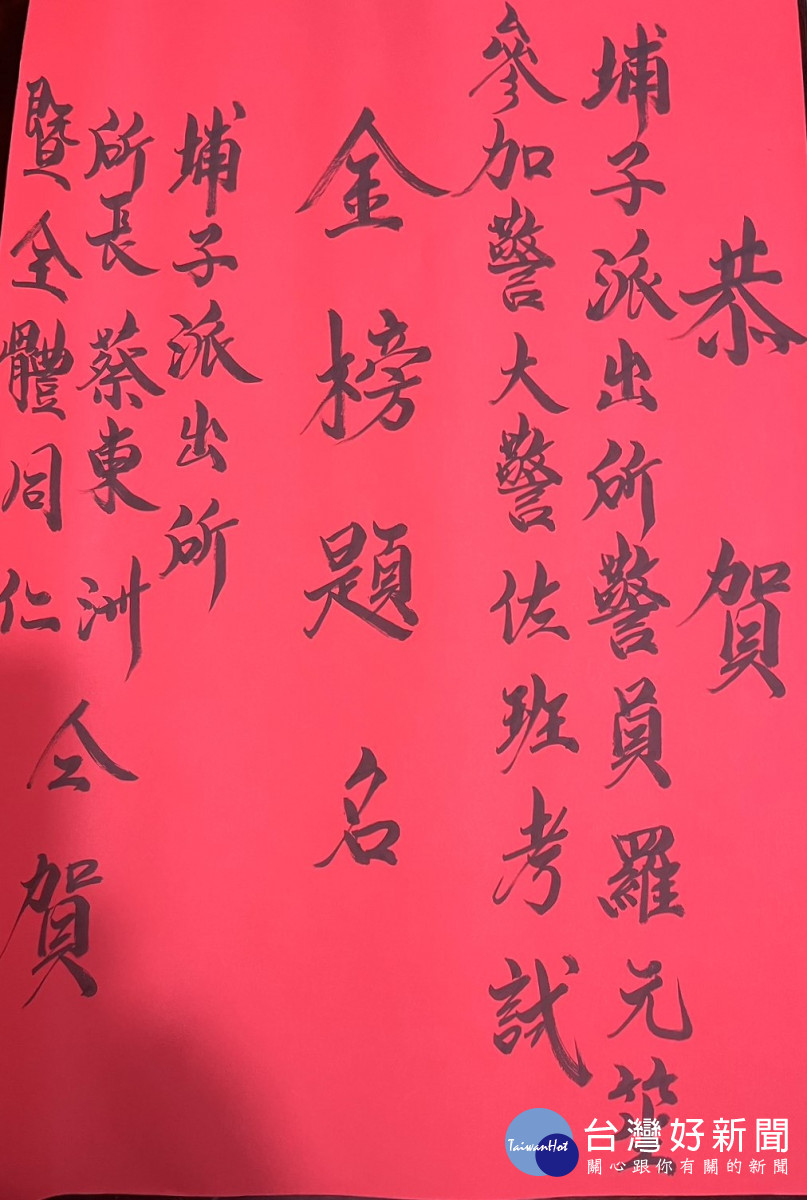 恭賀
埔子派出所警員羅元
參加警大警佐班考試
金榜題名
埔子派出所
所長蔡東洲
暨全體同仁
仝賀
TaiwanHot
台灣好新聞
關心跟你有關的新聞